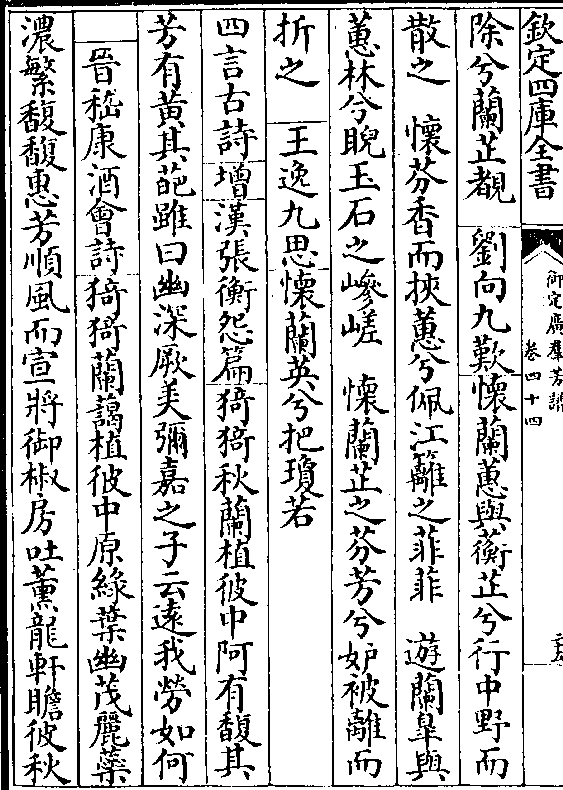 欽定四庫全書
御定廣羣芳譜
卷四十四
除兮蘭芷覩　劉向九歎懷蘭蕙與蘅芷兮行中野而
散之　懷芬香而挾蕙兮佩江籬之菲菲　遊蘭臯與
蕙林兮睨玉石之嵾嵯　懷蘭芷之芬芳兮妒被離而
折之　王逸九思懷蘭英兮把瓊若
四言古詩增漢張衡怨篇猗猗秋蘭植彼中阿有馥其
芳有黃其葩雖曰幽深厥美彌嘉之子云遠我勞如何
晉嵇康酒會詩猗猗蘭藹植彼中原綠葉幽茂麗藥
濃繁馥馥惠芳順風而宣將御椒房吐薰龍軒瞻彼秋